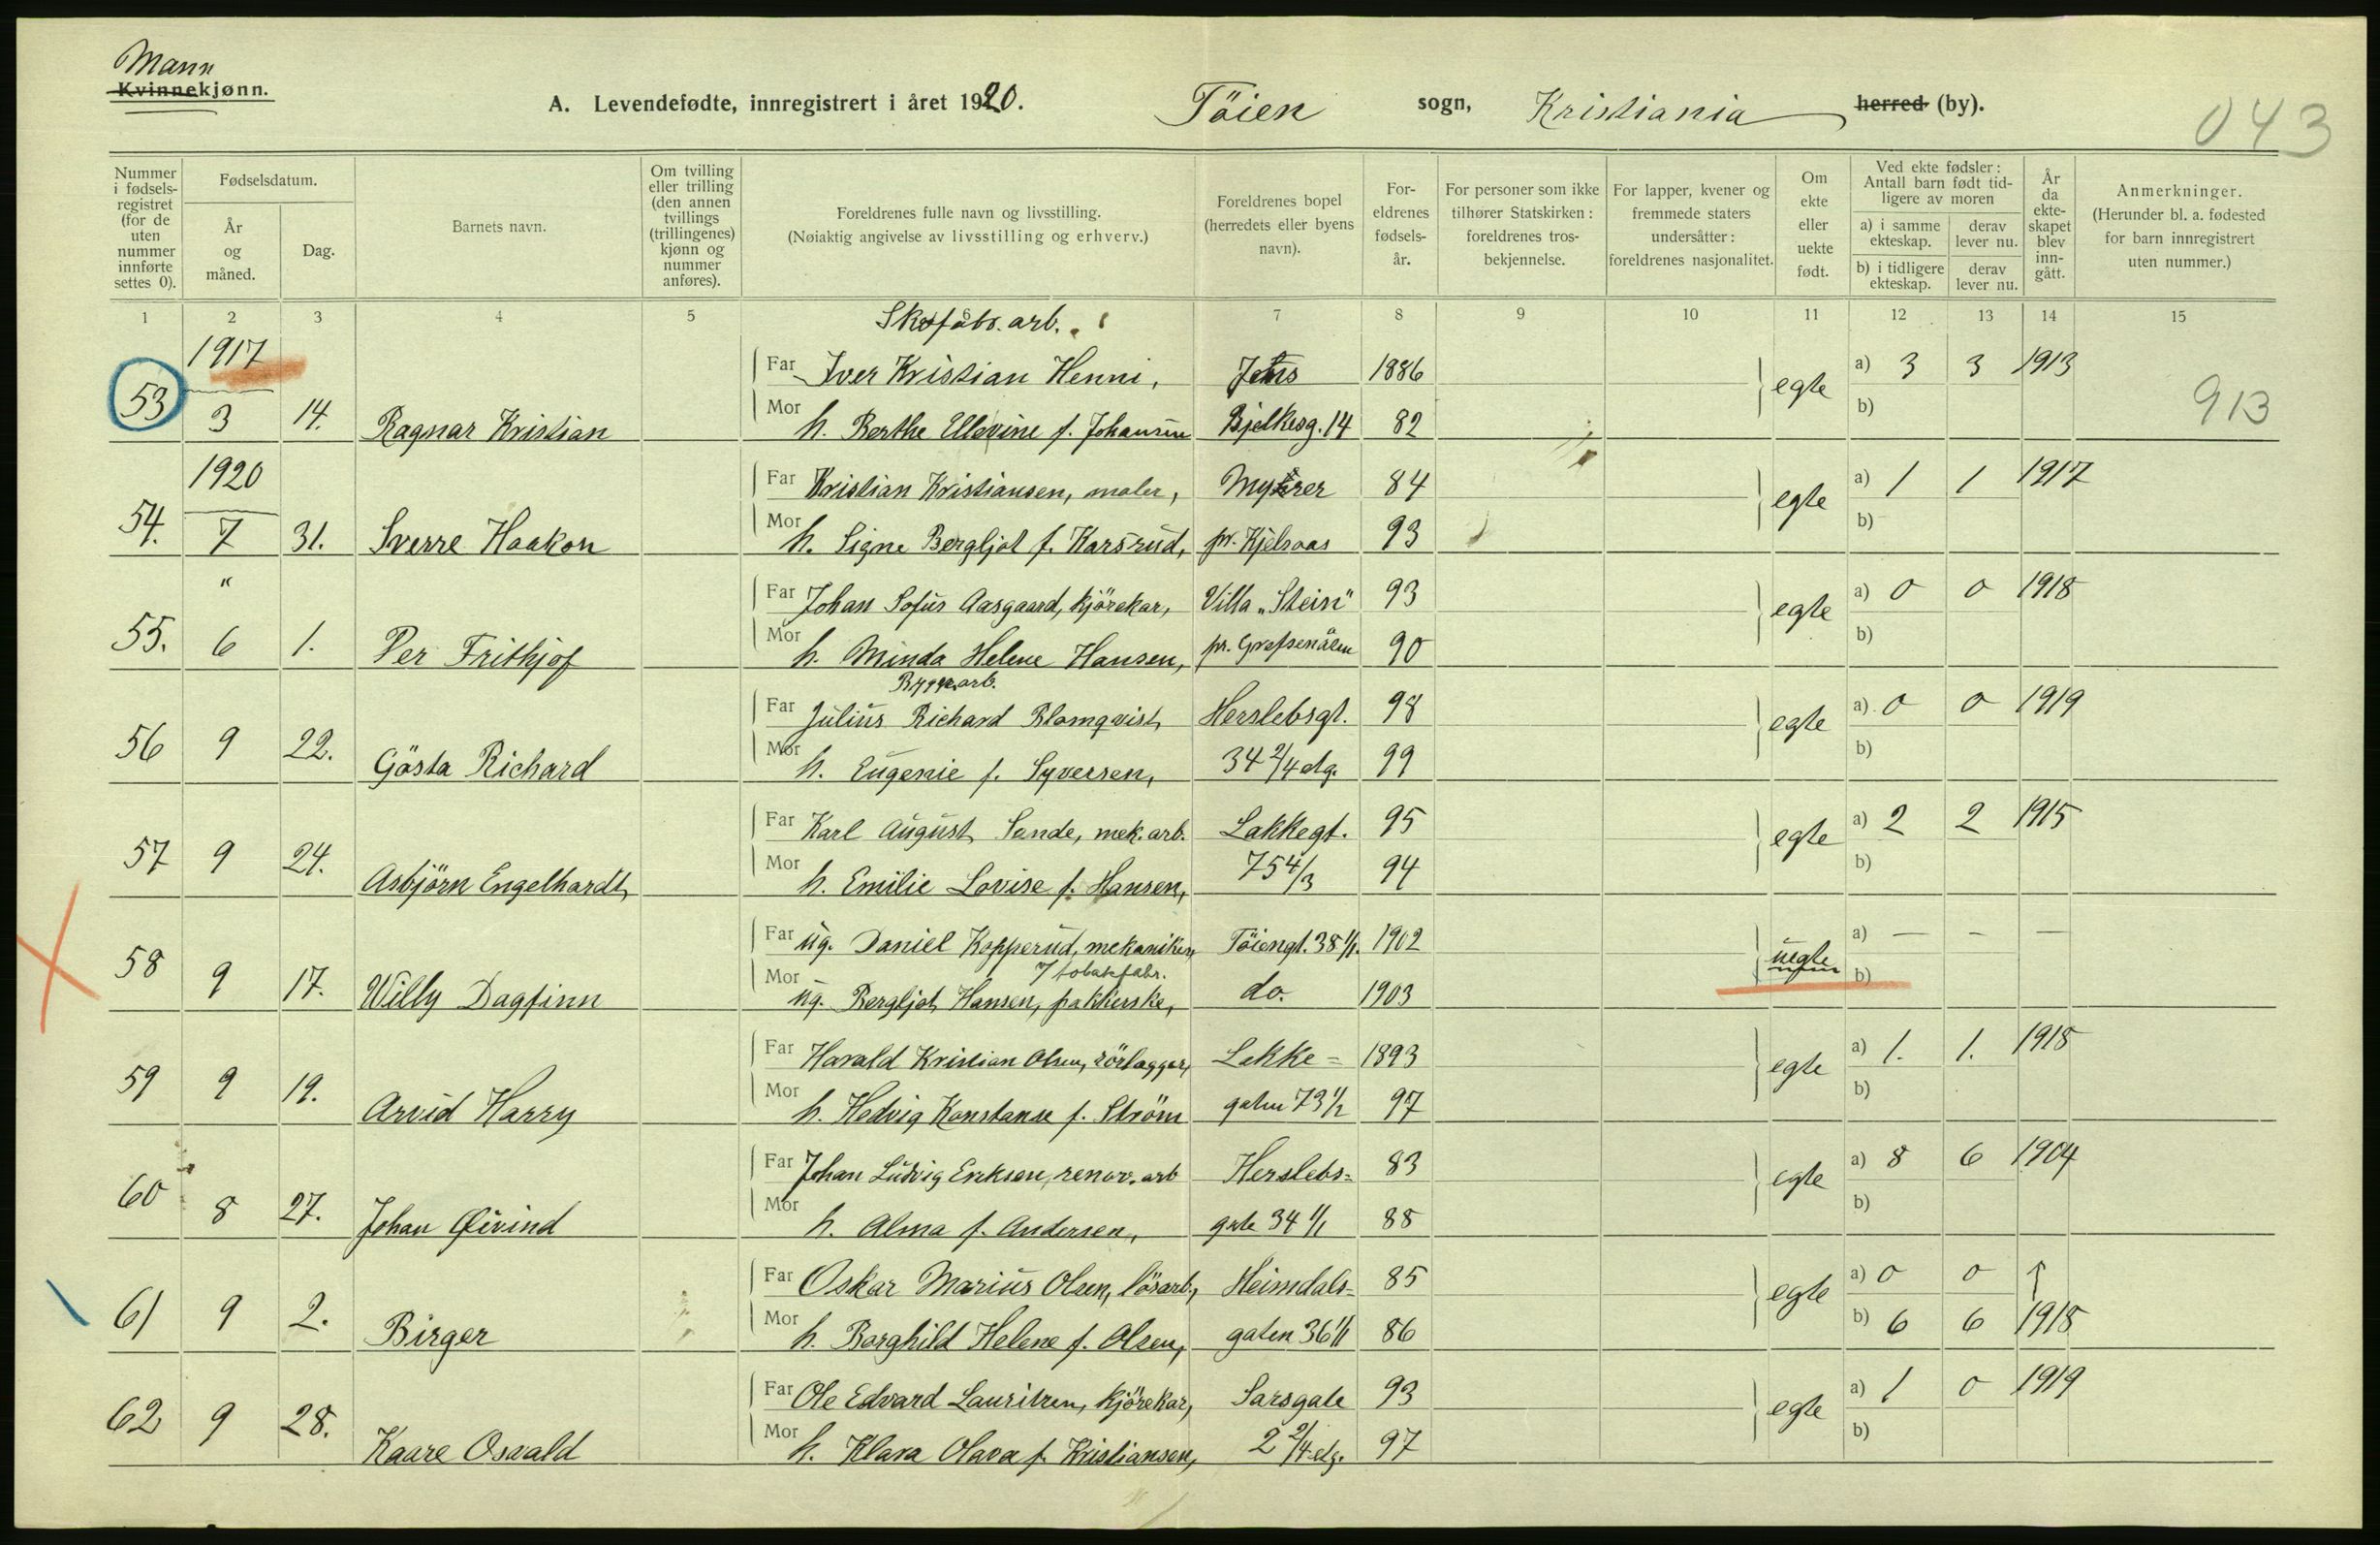 Mann
Kvinnekjønn.
A. Levendefødte, innregistrert i året 1920. Töien sogn, Kristiania herred (by).
043
Nummer i fødselsregistret (for de uten nummer innførte settes 0).
Fødselsdatum.
År og måned.
Dag.
Barnets navn.
Om tvilling eller trilling (den annen tvillings (trillingenes) kjønn og nummer anføres).
Foreldrenes fulle navn og livsstilling. (Nøiaktig angivelse av livsstilling og erhverv.)
Foreldrenes bopel (herredets eller byens navn).
Foreldrenes fødselsår.
For personer som ikke tilhører Statskirken: foreldrenes trosbekjennelse.
For lapper, kvener og fremmede staters undersåtter: foreldrenes nasjonalitet.
Om ekte eller uekte født.
Ved ekte fødsler: Antall barn født tidligere av moren
a) i samme ekteskap. derav lever nu.
b) i tidligere ekteskap. derav lever nu.
År da ekteskapet blev inngått.
Anmerkninger. (Herunder bl. a. fødested for barn innregistrert uten nummer.)
1 2 3 4 5 6 7 8 9 10 11 12 13 14 15
Skofabr. arb.
1917 Far Iver Kristian Henni, Jens 1886 egte a) 3 3 1913
53 3 14. Ragnar Kristian Mor h. Berthe Ellevine f. Johansen Bjelkesg. 14 82 b) 913
1920 Far Kristian Kristiansen, maler, Myrer 84 egte a) 1 1 1917
54. 7 31. Sverre Haakon Mor h. Signe Bergljot f. Karsrud, pr. Kjelsaas 93 b)
" Far Johan Sofus Aasgaard, kjörekar, Villa „Stein" 93 egte a) 0 0 1918
55. 6 1. Per Frithjof Mor h. Minda Helene Hansen, pr. Grefsenåsen 90 b)
Bygn. arb.
Far Julius Richard Blomqvist, Herslebsgt. 98 egte a) 0 0 1919
56 9 22. Gösta Richard Mor h. Eugenie f. Syversen, 34 2/4 etg. 99 b)
Far Karl August Sande, mek. arb. Lakkegt. 95 egte a) 2 2 1915
57 9 24. Asbjörn Engelhardt Mor h. Emilie Lovise f. Hansen, 75 4/3 94 b)
Far ug. Daniel Kopperud, mekaniker, Töiengt. 38 1/1. 1902 uegte a) — – —
i tobakfabr.
58 9 17. Willy Dagfinn Mor ug. Bergljot Hansen, pakkerske, do. 1903 b)
Far Harald Kristian Olsen, rörlægger, Lakke= 1893 egte a) 1. 1. 1918
59 9 19. Arvid Harry Mor h. Hedvig Konstanse f. Ström gaten 73 1/2 97 b)
Far Johan Ludvig Eriksen, renov. arb Herslebs= 83 egte a) 8 6 1904
60 8 27. Johan Øivind Mor h. Alma f. Andersen, gate 34 1/1 88 b)
Far Oskar Marius Olsen, lösarb., Heimdals= 85 egte a) 0 0 ↑
61 9 2. Birger Mor h. Borghild Helene f. Olsen, gaten 36 1/1 86 b) 6 6 1918
Far Ole Edvard Lauritzen, kjörekar, Sarsgate 93 egte a) 1 0 1919
62 9 28. Kaare Osvald Mor h. Klara Olava f. Kristiansen, 2 2/4 etg. 97 b)